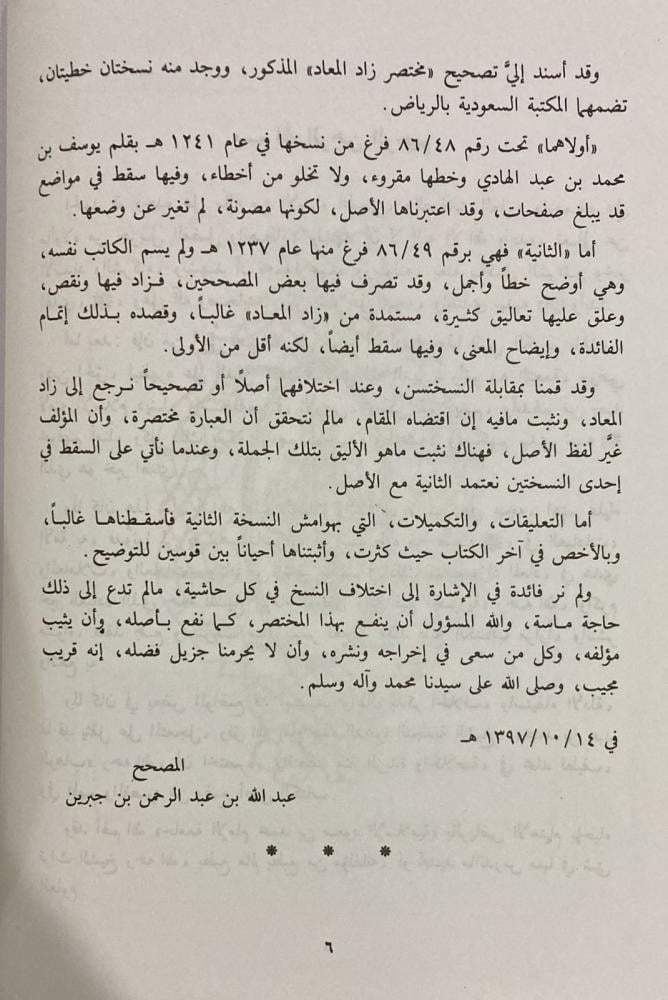 وقد أسند إليَّ تصحيح «مختصر زاد المعاد» المذكور، ووجد منه نسختان خطيتان،
تضمهما المكتبة السعودية بالرياض.
«أولاهما» تحت رقم ٨٦/٤٨ فرغ من نسخها في عام ١٢٤١ هـ بقلم يوسف بن
محمد بن عبد الهادي وخطها مقروء، ولا تخلو من أخطاء، وفيها سقط في مواضع
قد يبلغ صفحات، وقد اعتبرناها الأصل، لكونها مصونة، لم تغير عن وضعها.
أما «الثانية» فهي برقم ٨٦/٤٩ فرغ منها عام ١٢٣٧ هـ ولم يسم الكاتب نفسه،
وهي أوضح خطاً وأجمل، وقد تصرف فيها بعض المصححين، فـزاد فيها ونقص،
وعلق عليها تعاليق كثـيرة، مستمدة من «زاد المعـاد» غالبـاً، وقصده بـذلك إتمـام
الفائدة، وإيضاح المعنى، وفيها سقط أيضاً، لكنه أقل من الأولى.
وقد قمنا بمقابلة النسختسن، وعند اختلافهما أصلًا أو تصحيحاً نـرجع إلى زاد
المعاد، ونثبت مافيه إن اقتضاه المقام، مالم نتحقق أن العبارة مختصرة، وأن المؤلف
غيَّر لفظ الأصل، فهناك نثبت ماهو الأليق بتلك الجملة، وعندما نأتي على السقط في
إحدى النسختين نعتمد الثانية مع الأصل.
أما التعليقات، والتكميلات، التي بهوامش النسخة الثانية فأسقـطناهـا غالبـاً،
وبالأخص في آخر الكتاب حيث كثرت، وأثبتناها أحياناً بين قوسين للتوضيح.
ولم نر فائدة في الإشارة إلى اختلاف النسخ في كل حاشية، مالم تدع إلى ذلك
حاجة مـاسة، والله المسؤول أن ينفـع بهذا المختصر، كـما نفع بـأصله، وأن يثيب
مؤلفه، وكل من سعى في إخراجه ونشره، وأن لا يحرمنا جزيل فضله، إنه قريب
مجيب، وصلى الله على سيدنا محمد وآله وسلم.
في ١٣٩٧/١٠/١٤ هـ
المصحح
عبد الله بن عبد الرحمن بن جبرين
* * *
٦